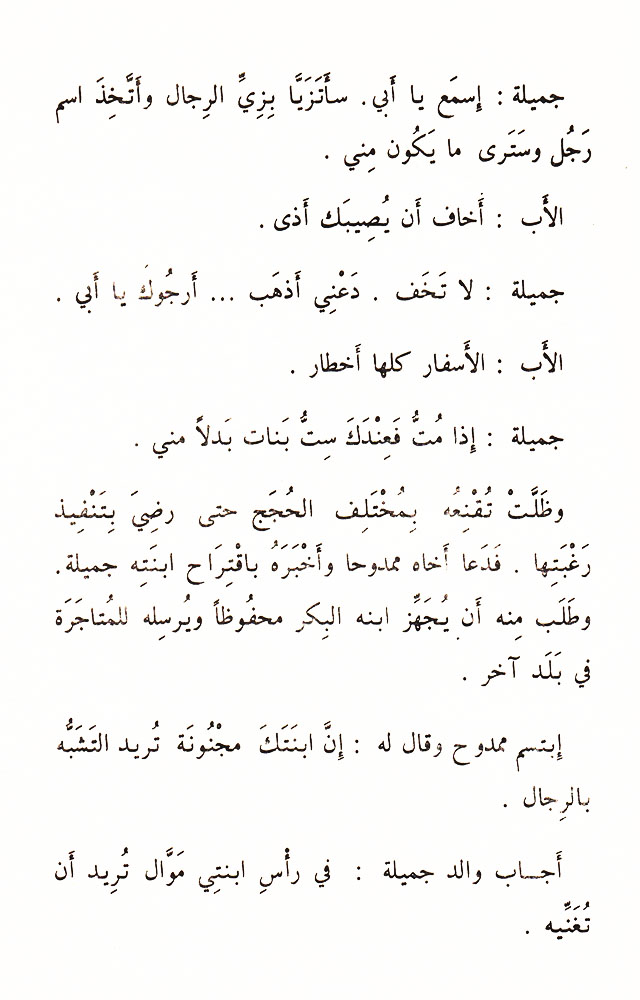 جميلة : إِسمَع يا أَبي . سأَتَزَيَّا بِزِيِّ الرِجال وأَتَّخِذَ اسم
رَجُل وسَتَرى ما يَكُون مِني .
الأَب : أَخاف أَن يُصِيبَك أَذى .
جميلة : لا تَخَف . دَعْنِي أَذهَب ... أَرجُوكَ يا أَبي .
الأَب : الأَسفار كلها أَخطار .
جميلة : إِذا مُتُّ فَعِنْدَكَ سِتُّ بَنات بَدلاً مني .
وظَلَّتْ تُقْنِعُه بِمُخْتَلِف الحُجَج حتى رضِيَ بِتَنْفِيذ
رَغْبَتِها . فَدَعا أَخاه ممدوحا وأَخْبَرَهُ باقْتِرَاح ابنَتِه جميلة .
وطَلَب مِنه أَن يُجَهِّز ابنه البِكر محفُوظاً ويُرسِله للمُتاجَرَة
في بَلَد آخر .
إِبتسم ممدوح وقال له : إِنَّ ابنَتَكَ مجْنُونَة تُريد التَشَبُّه
بالرِجال .
أَجاب والد جميلة : في رأْسِ ابنتِي مَوَّال تُرِيد أَن
تُغَنِّيه .